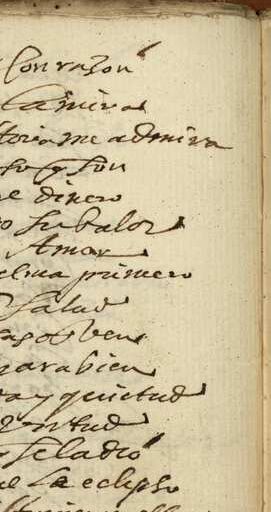 Con razon
la mira
toria me admira
so q son
e dinero
o su balor
Amor
elma primero
Salud
ben
parabien
ta y quietud
Virtud
se la dió
e la eclipso